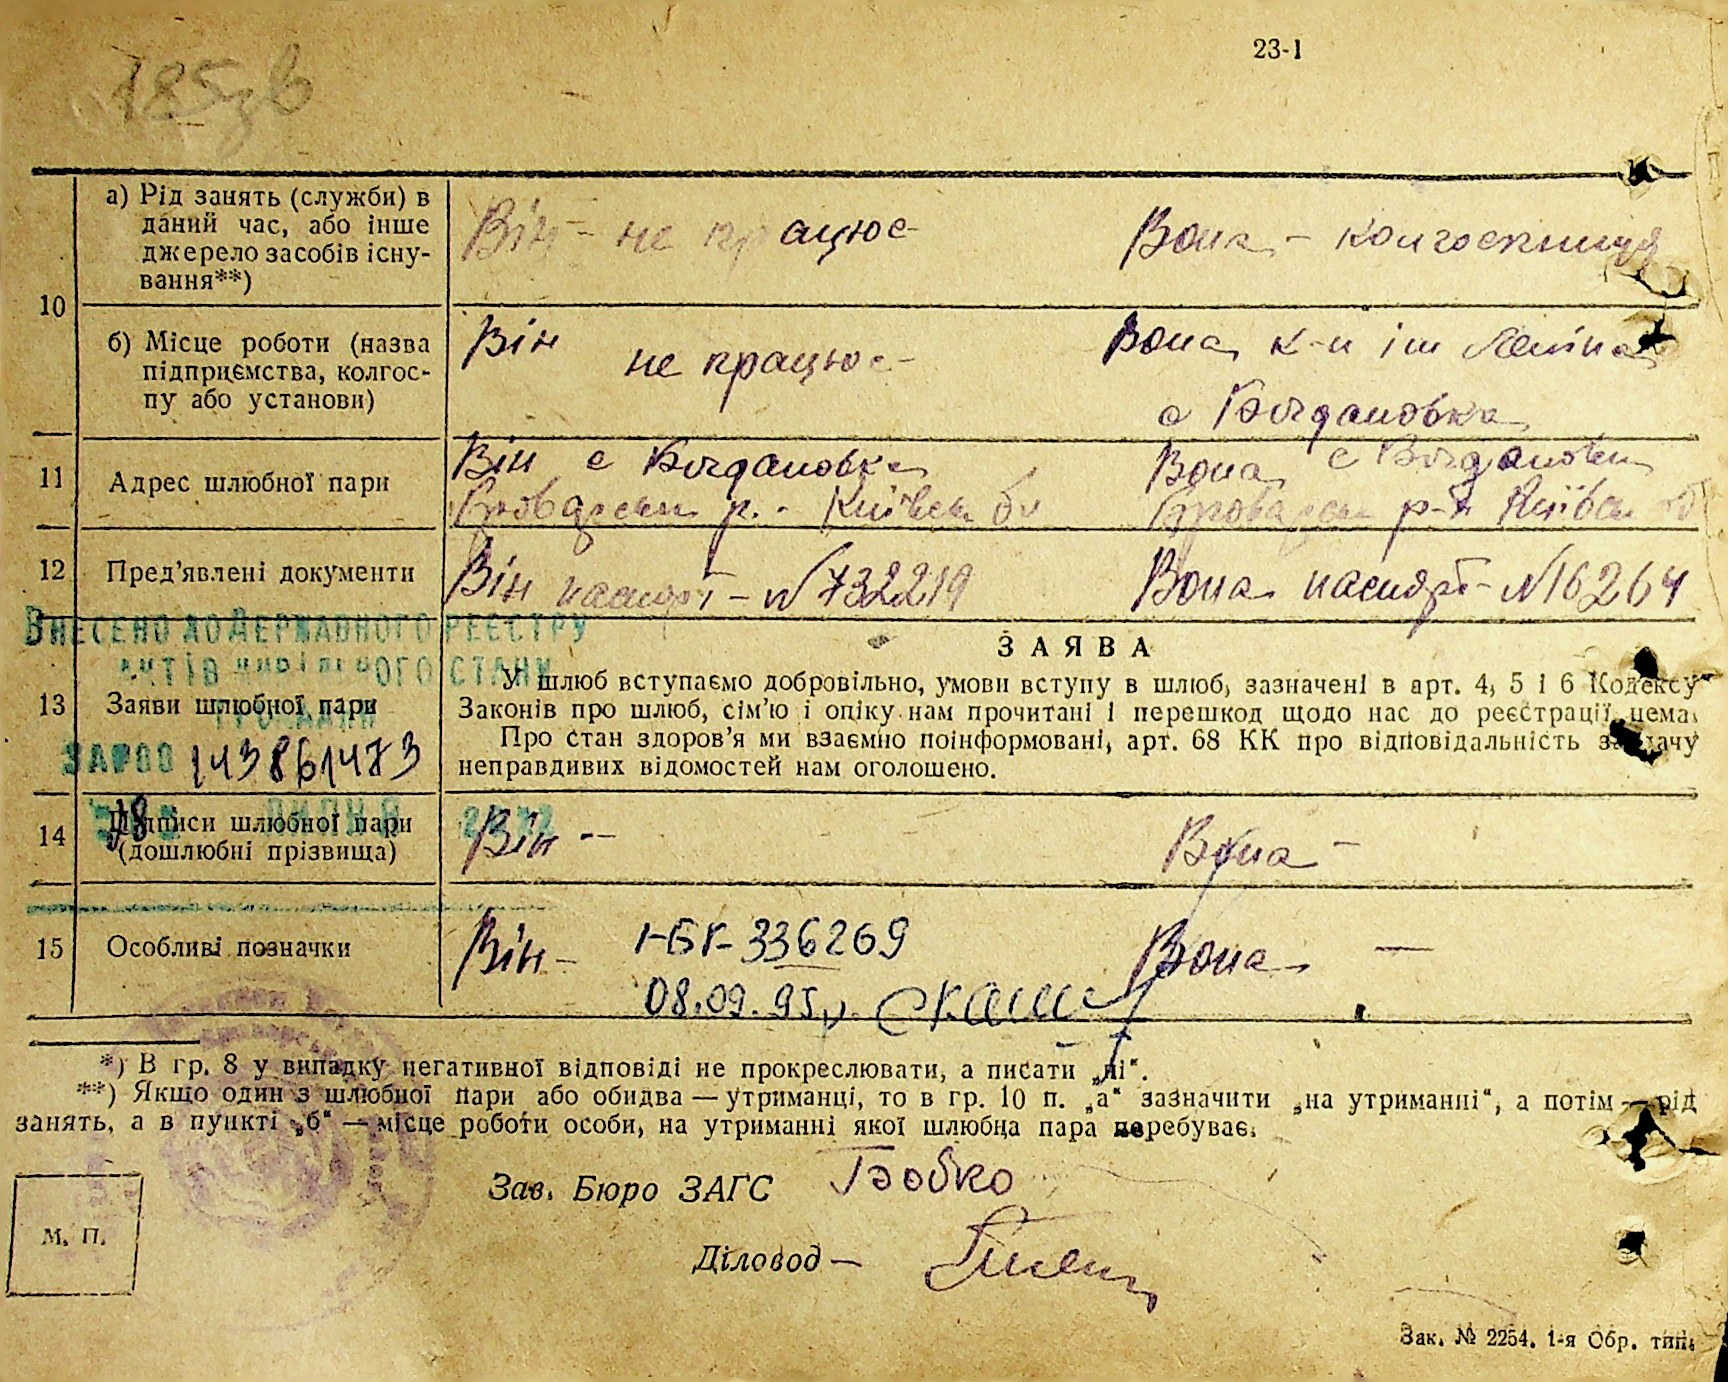 23-1
10
а) Рід занять (служби) в
даний час, або інше
джерело засобів існу-
вання**)
Він - не працює
Вона - колгоспниця
б) Місце роботи (назва
підприємства, колгос-
пу або установи)
Він
не працює
Вона к-п ім Леніна
с Богдановка
11
Адрес шлюбної пари
Він с Богдановка
Броварськ р. Київськ
Вона с Богдановка
Броварськ р-н Київськ об
12
Пред’явлені документи
Він паспорт - № 732219
Вона паспорт - № 16264
Внесено до Державного реєстру
актів цивільного стану
громадян
13
Заяви шлюбної пари
ЗАЯВА
У шлюб вступаємо добровільно, умови вступу в шлюб, зазначені в арт. 4, 5 і 6 Кодексу
Законів про шлюб, сім’ю і опіку нам прочитані і перешкод щодо нас до реєстрації нема.
Про стан здоров’я ми взаємно поінформовані, арт. 68 КК про відповідальність за дачу
неправдивих відомостей нам оголошено.
за №00 143861473
14
Підписи шлюбної пари
(дошлюбні прізвища)
Він -
Вона -
18
15
Особливі позначки
Він -
I-БК-336269
08.09.95р.
Вона -
*) В гр. 8 у випадку негативної відповіді не прокреслювати, а писати „ні“.
**) Якщо один з шлюбної пари або обидва — утриманці, то в гр. 10 п. „а“ зазначити „на утриманні“, а потім — рід
занять, а в пункті „б“ — місце роботи особи, на утриманні якої шлюбна пара перебуває.
Зав. Бюро ЗАГС Бобко
М. П.
Діловод —
Зак. № 2254. 1-я Обр. тип.